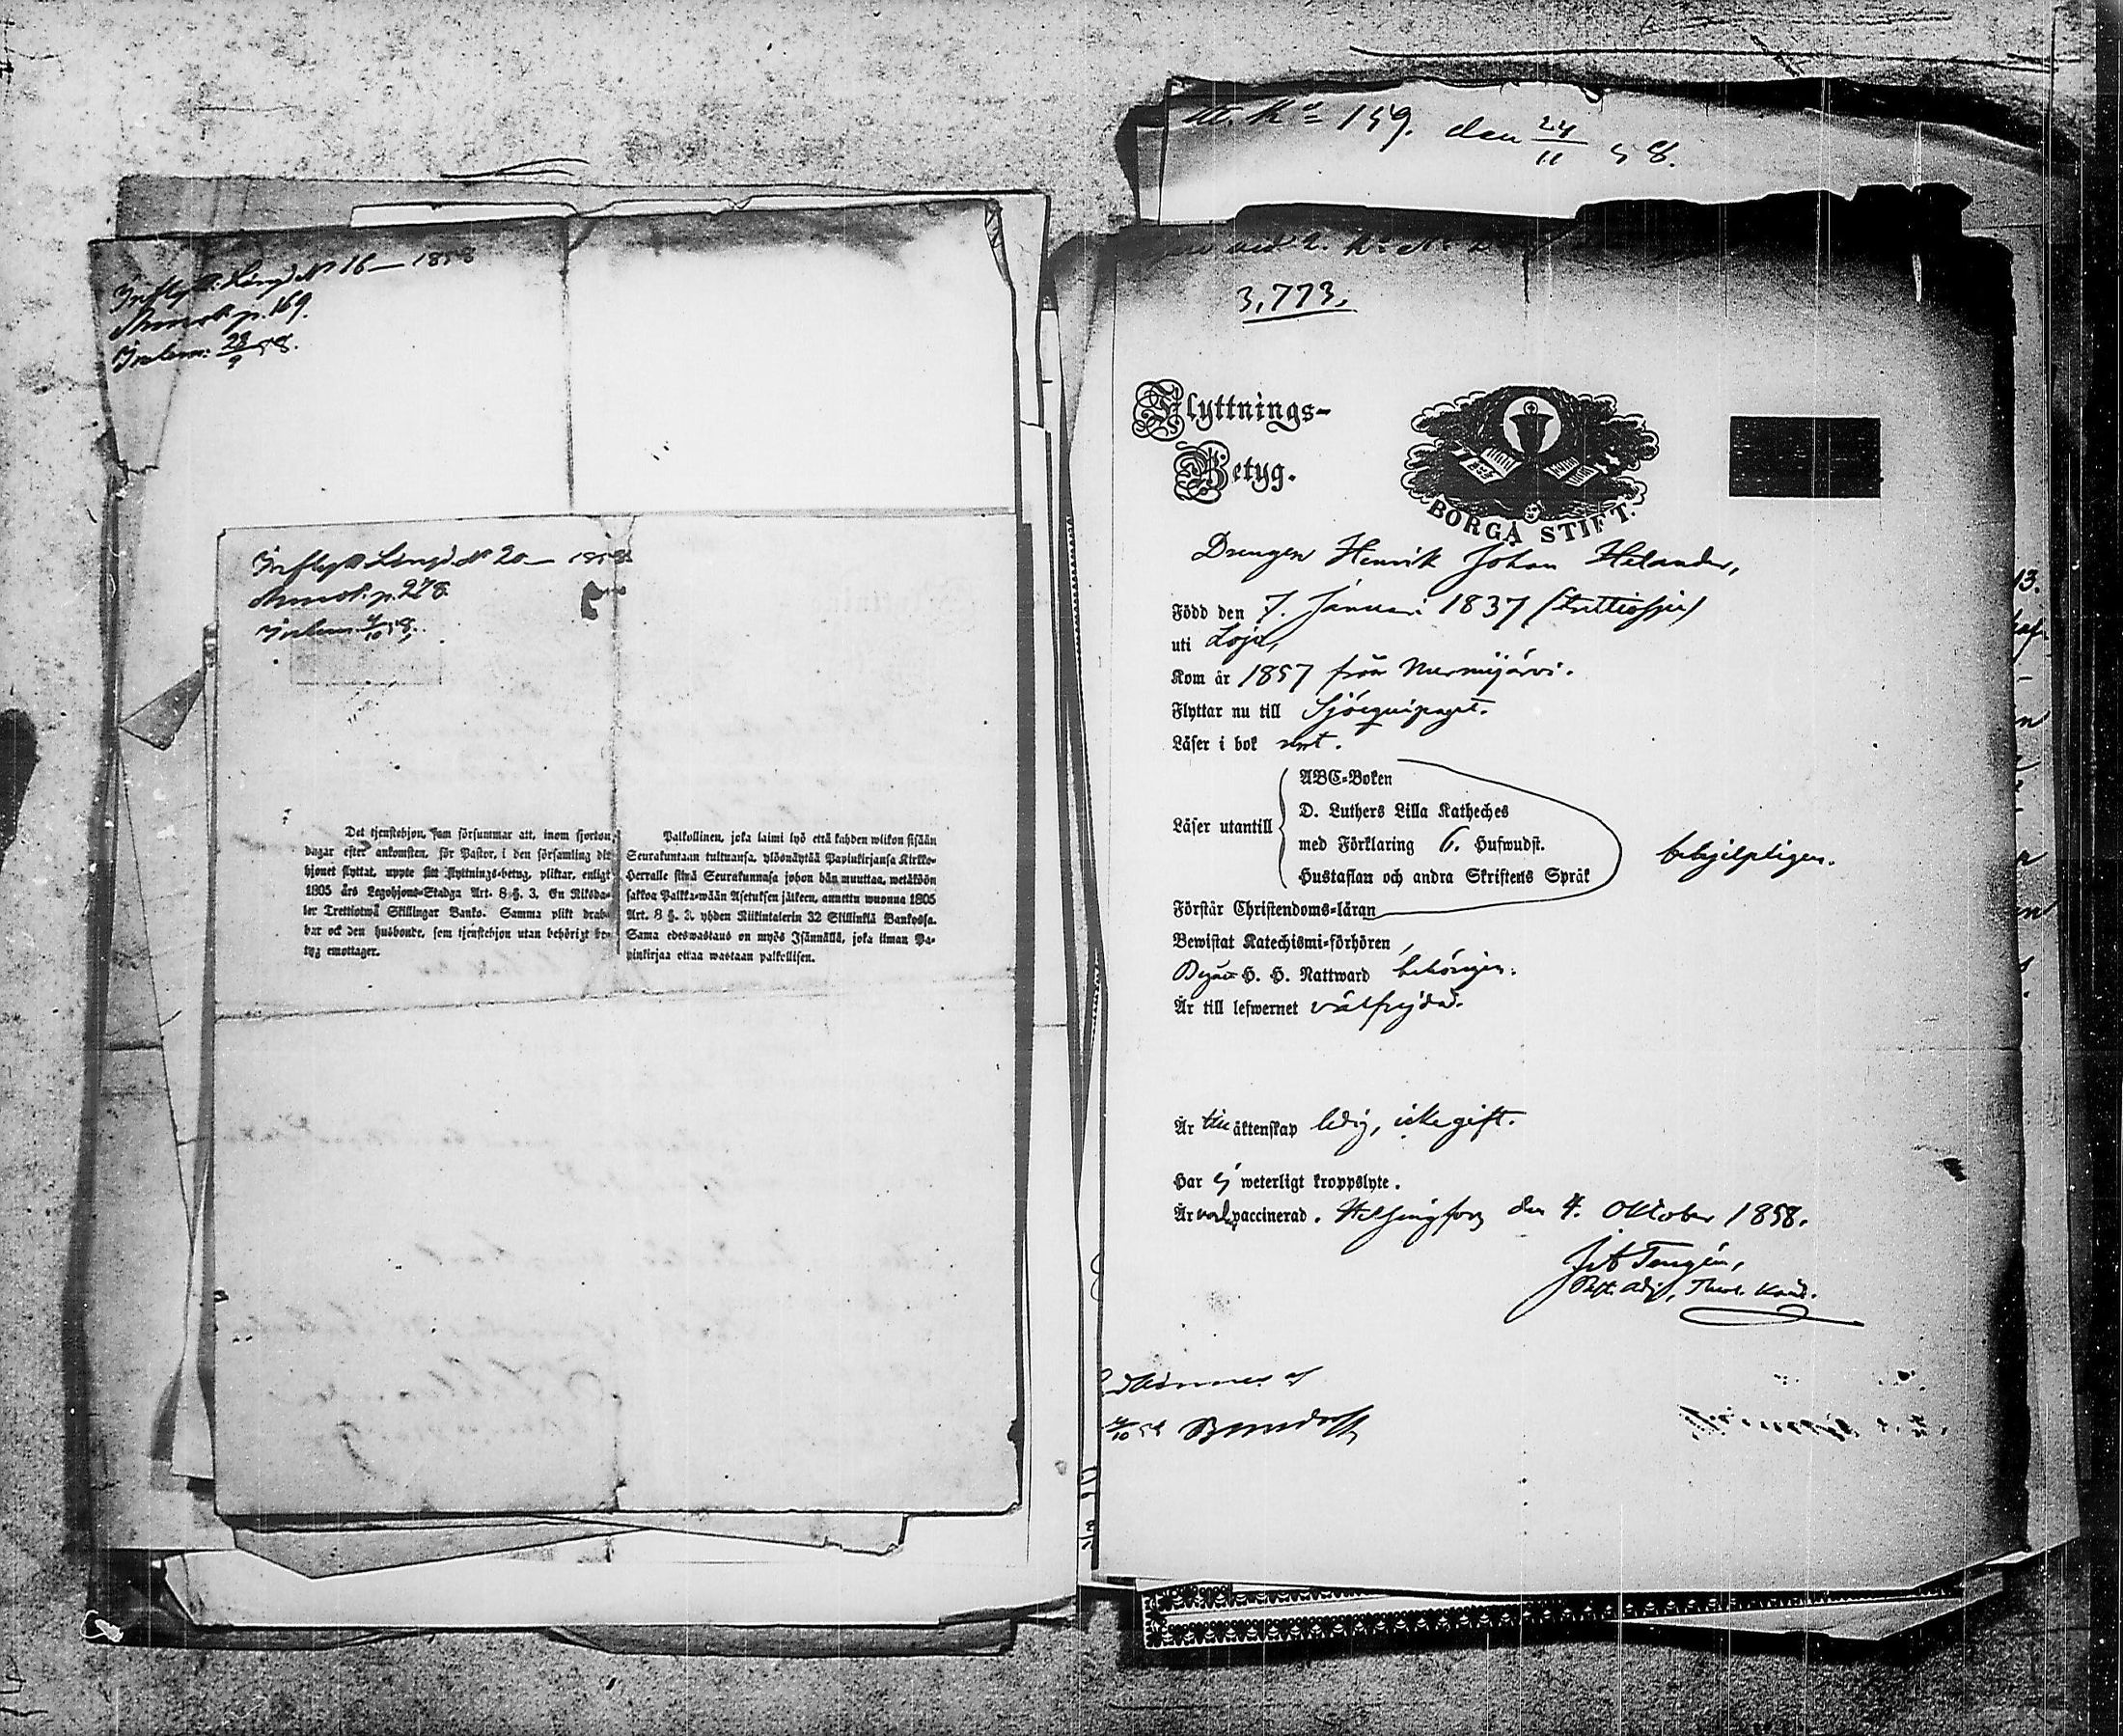 Inflytt: Längd № 16 — 1858
p. 169.
28/9 58.
Inflytt Längd № 20 — 1858
p. 278.
Det tjenstehjon, som försummar att, inom fjorton
dagar efter ankomsten, för Pastor, i den församling dit
hjonet flyttat, uppte sitt flyttnings-betyg, pliktar, enligt
1805 års Legohjons-Stadga Art. 8 §. 3. En Riksda-
ler Trettiotwå Skillingar Banko. Samma plikt drab-
bar ock den husbonde, som tjenstehjon utan behörigt be-
tyg emottager.
Palkollinen, joka laimi lyö että kahden wiikon sisään
Seurakuntaan tultuansa, ylösnäytää Papinkirjansa Kirkko-
Herralle siinä Seurakunnasa johon hän muuttaa, wetäköön
sakkoa Palkka-wään Asetuksen jälkeen, annettu wuonna 1805
Art. 8 §. 3. yhden Riikintalerin 32 Skillinkiä Bankossa.
Sama edeswastaus on myös Isännällä, joka ilman Pa-
pinkirjaa ottaa wastaan palkollisen.
159. den 24/11 58.
3,773.
Flyttnings-
Betyg.
BORGÅ STIFT.
Drengen Henrik Johan Helander,
Född den 7. Januari 1837 (trettiosju)
uti Lojo,
Kom år 1857 från Nurmijärvi.
Flyttar nu till Sjöequipaget.
Läser i bok rent.
ABC-Boken
D. Luthers Lilla Katheches
Läser utantill
med Förklaring 6. Hufwudst.
behjelpligen.
Hustaflan och andra Skriftens Språk
Förstår Christendoms-läran
Bewistat Katechismi-förhören,
Begått H. H. Nattward behörigen.
Är till lefwernet välfrejdad.
Är till äktenskap ledig, icke gift.
Har ej weterligt kroppslyte.
Är vaccinerad. Helsingfors den 4. Oktober 1858.
Tengén,
Past. Adj., Theol. Kand.